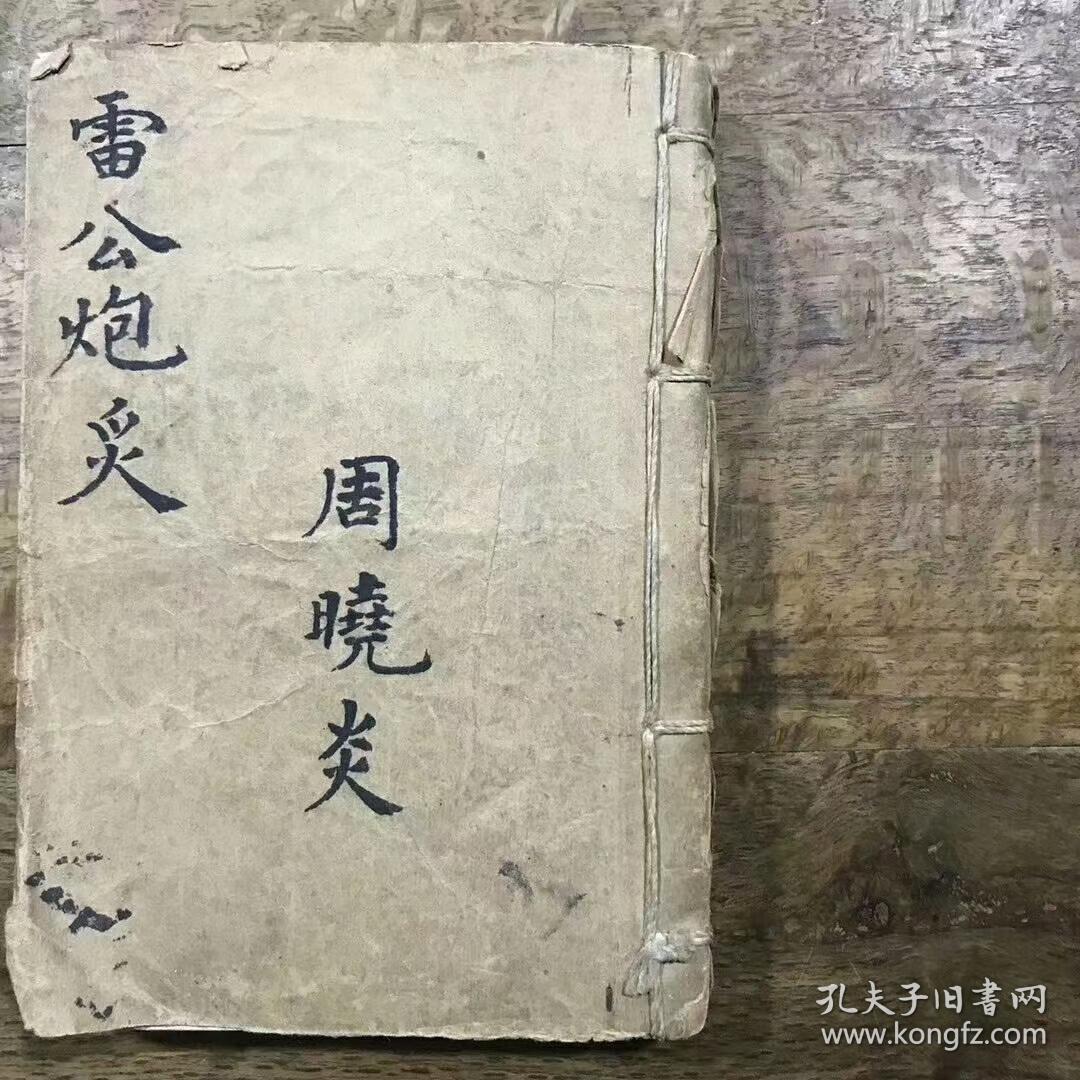 雷公炮炙
周曉炎
孔夫子旧書网
www.kongfz.com